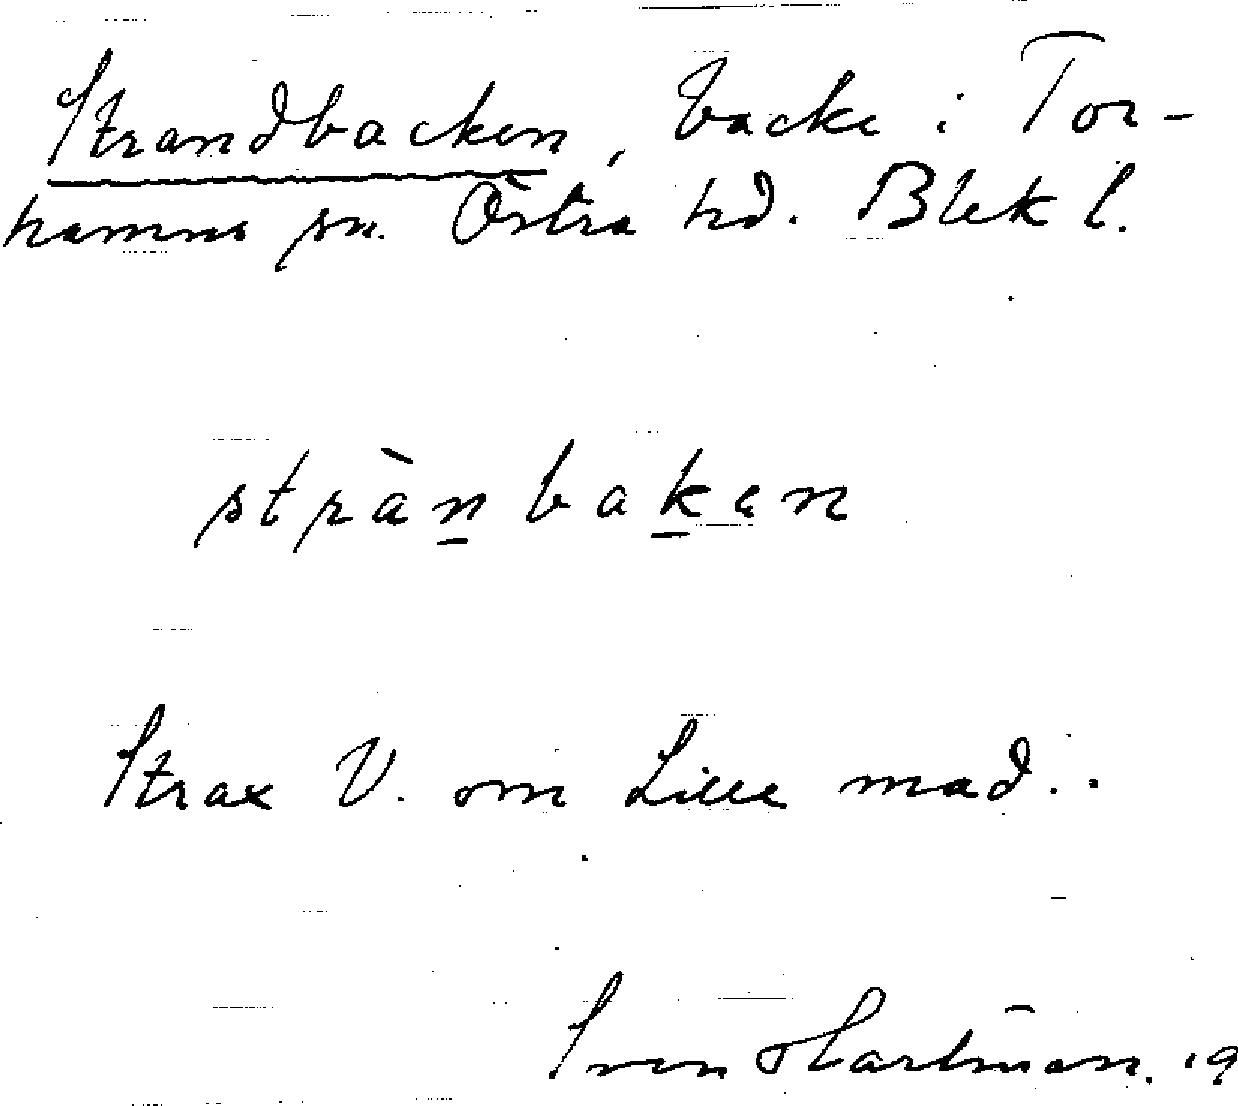 Strandbacken, backe i Tor-
hamns sn. Östra hd. Blek l.
strànbaken
Strax V. om Lille mad..
Sven Hartman. 19